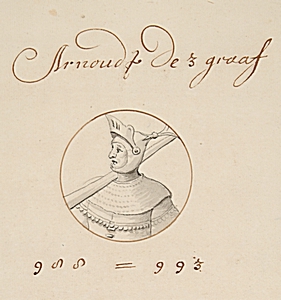 Arnoudt De 3 graaf
988 = 993